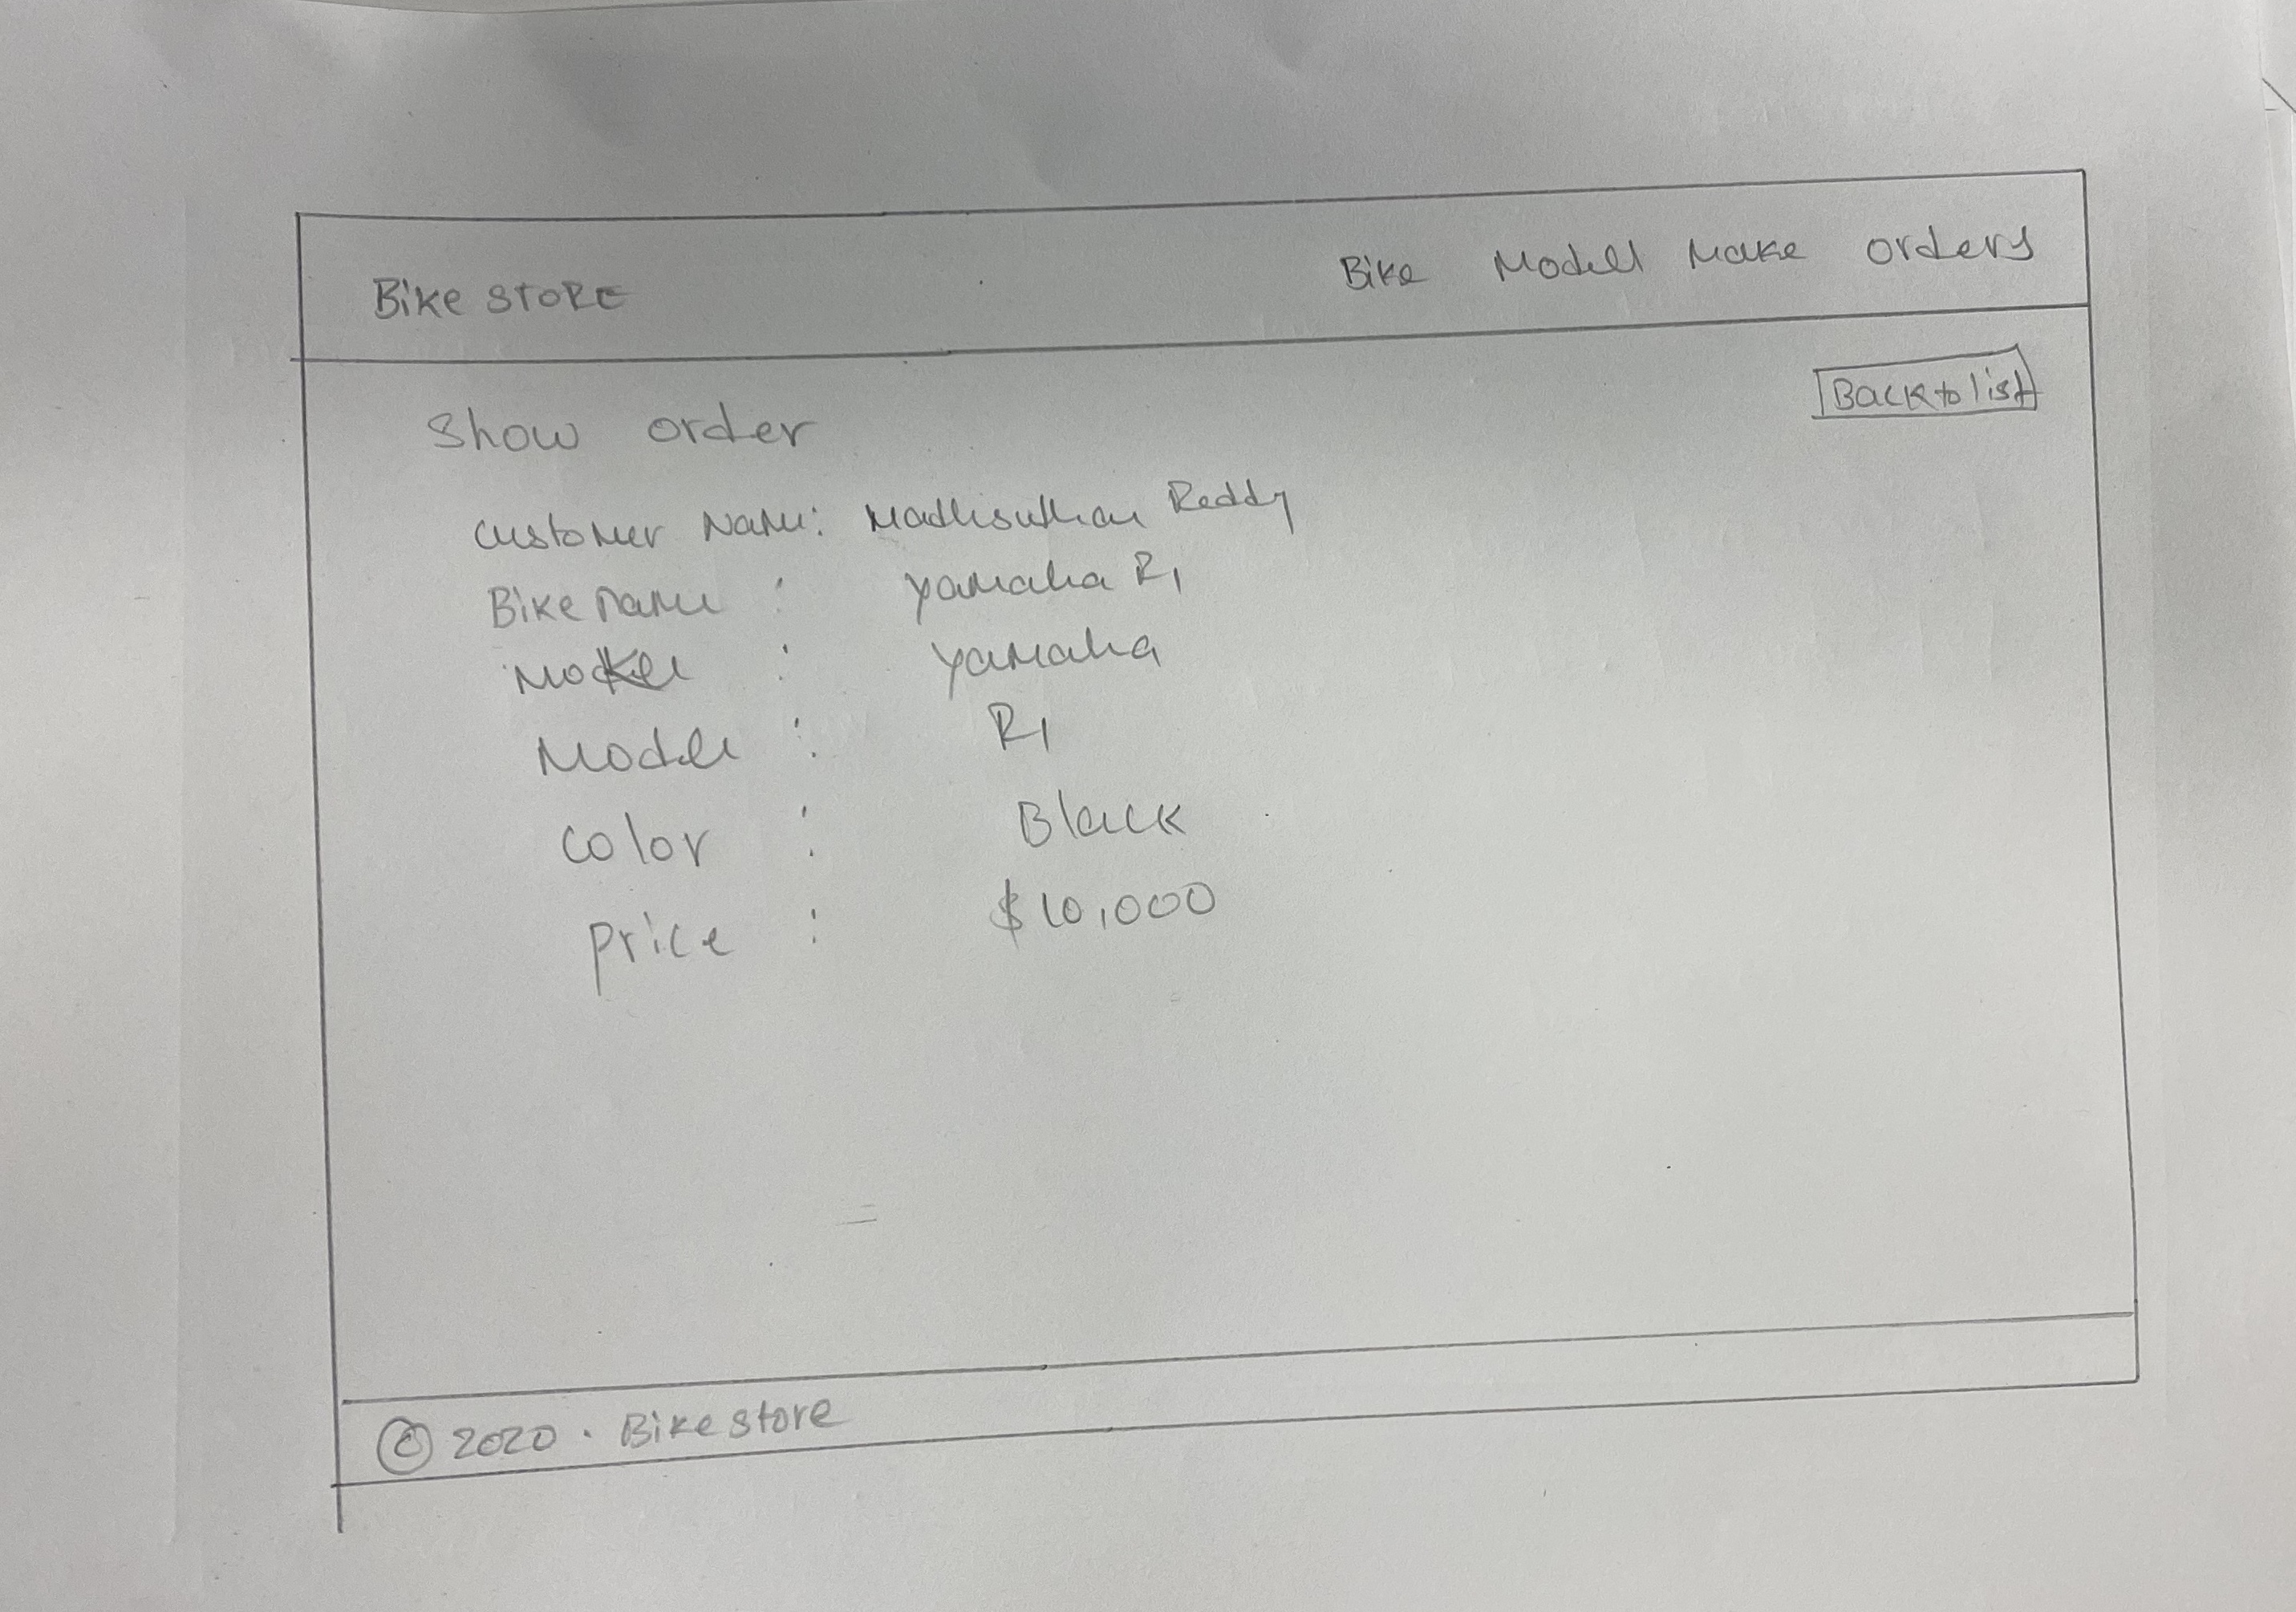 Bike STORE
Bike Model Make orders
Back to list
Show order
Customer Name: Madhusuthan Reddy
Bike name : Yamaha R1
: Yamaha
Model : R1
Color : Black
Price : $10,000
© 2020 . Bike store